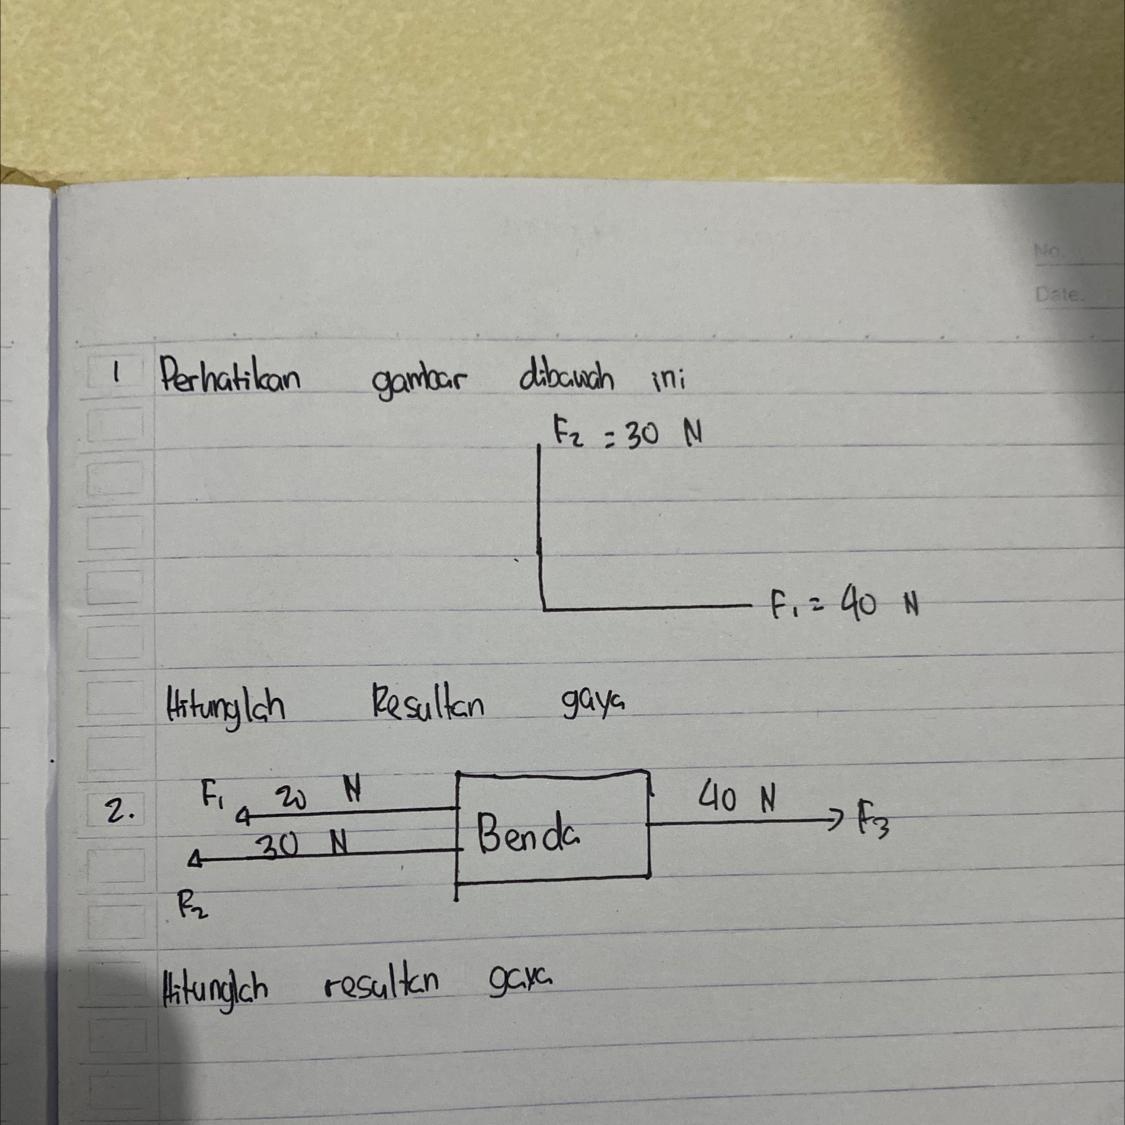 No.
Date.
1 Perhatikan gambar dibawah ini
F₂ = 30 N
F₁ = 40 N
Hitunglah Resultan gaya
2. F₁ 20 N 40 N F₃
30 N Benda
F₂
Hitunglah resultan gaya